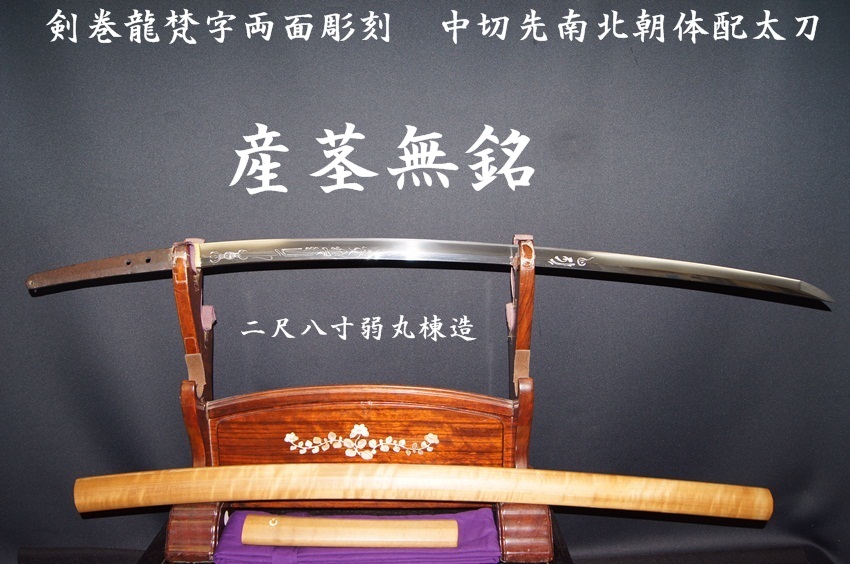 剣巻龍梵字両面彫刻　中切先南北朝体配太刀
産茎無銘
二尺八寸弱丸棟造